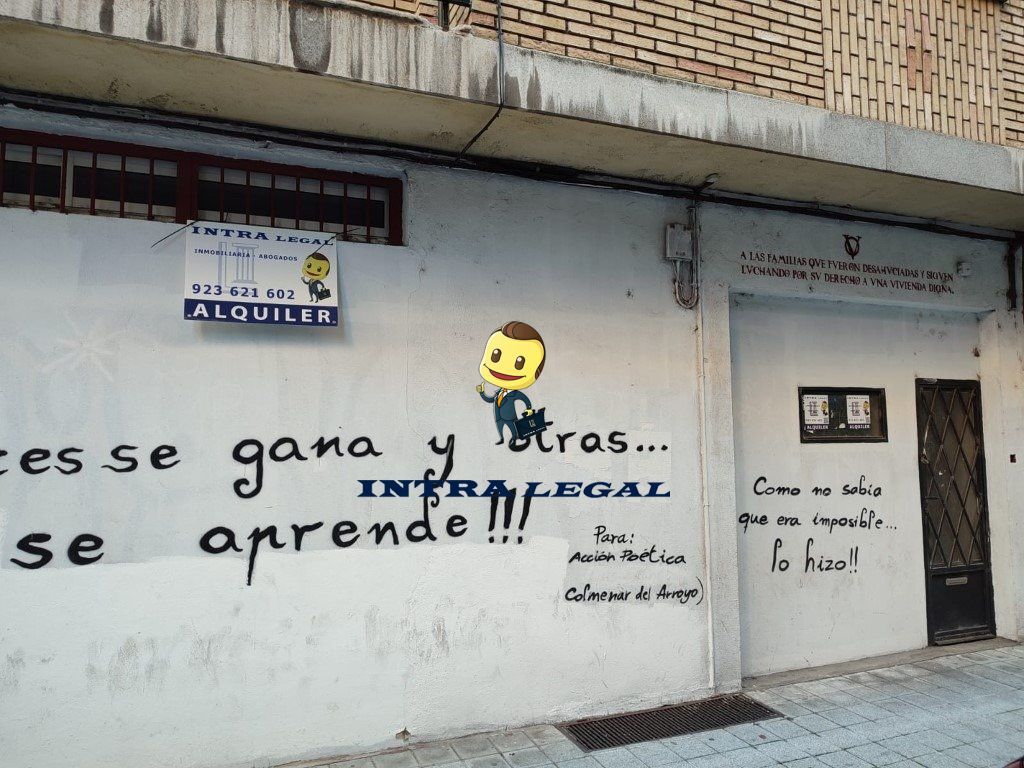 INTRA LEGAL
INMOBILIARIA - ABOGADOS
923 621 602
ALQUILER
A LAS FAMILIAS QUE FUERON DESAHUCIADAS Y SIGUEN
LUCHANDO POR SU DERECHO A UNA VIVIENDA DIGNA.
ces se gana y otras...
se aprende !!!
INTRA LEGAL
Para:
Acción Poética
Colmenar del Arroyo)
ALQUILER
ALQUILER
Como no sabia
que era imposible...
lo hizo!!